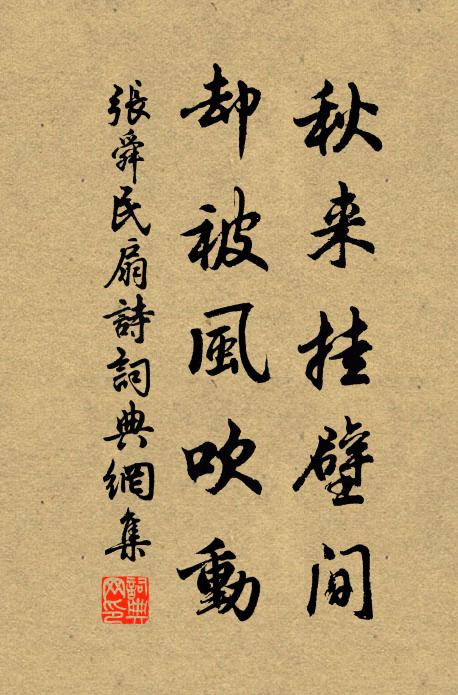 秋来挂壁间
却被風吹動
張舜民扇詩詞典網集
詞典网印